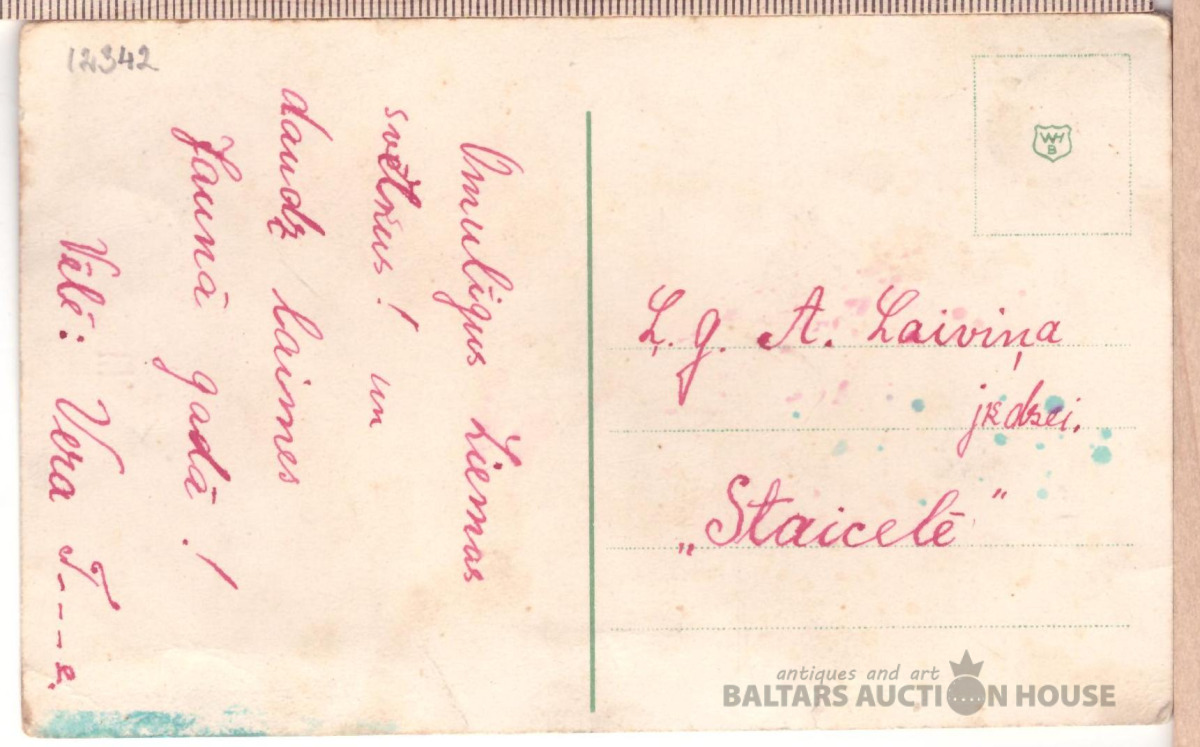 12342
Omulīgus Ziemas
svētkus! un
daudz laimes
Jaunā gadā!
Vēlē: Vera T---e.
WH
B
Ļ. g. A. Laiviņa
jkdzei.
„Staicelē"
antiques and art
BALTARS AUCTION HOUSE